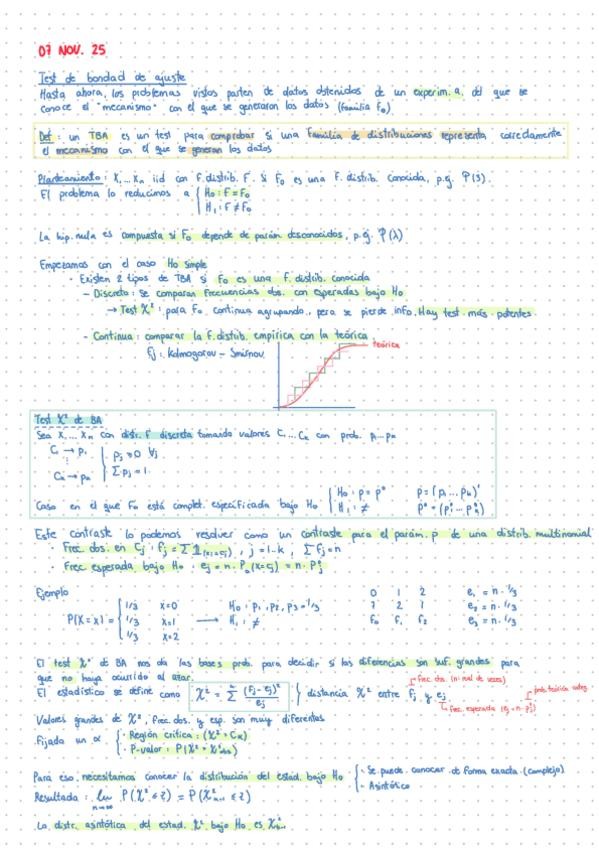 07 NOV. 25
Test de bondad de ajuste
Hasta ahora, los problemas vistos parten de datos obtenidos de un experim. a. del que se
conoce el "mecanismo" con el que se generaron los datos (familia F₀).
Def: un TBA es un test para comprobar si una familia de distribuciones representa correctamente
el mecanismo con el que se generan los datos
Planteamiento: X₁...Xₙ iid con F. distrib. F. Si F₀ es una F. distrib. conocida, p.ej. P(3).
El problema lo reducimos a { H₀: F = F₀
H₁: F ≠ F₀
La hip. nula es compuesta si F₀ depende de parám. desconocidos, p.ej. P(λ)
Empezamos con el caso H₀ simple
· Existen 2 tipos de TBA si F₀ es una F. distrib. conocida
– Discreto: Se comparan frecuencias obs. con esperadas bajo H₀
→ Test χ²: para F₀ continua agrupando, pero se pierde info. Hay test más potentes
– Continua: comparar la F. distrib. empírica con la teórica
Ej: Kolmogorov – Smirnov
teórica
Test χ² de BA
Sea X₁...Xₙ con distr. F discreta tomando valores C₁...Cₖ con prob. p₁...pₖ
C₁ → p₁ { pⱼ ≥ 0 ∀j
⋮
Cₖ → pₖ Σpⱼ = 1
Caso en el que F₀ está complet. especificada bajo H₀ { H₀: p = p⁰ p = (p₁...pₖ)'
H₁: ≠ p⁰ = (p₁⁰...pₖ⁰)'
Este contraste lo podemos resolver como un contraste para el parám. p de una distrib. multinomial
· Frec. obs. en Cⱼ: fⱼ = Σ 𝟙(xᵢ=cⱼ), j = 1...k, Σfⱼ = n
· Frec. esperada bajo H₀: eⱼ = n · P₀(X=cⱼ) = n · pⱼ⁰
Ejemplo
P(X=x) = { 1/3 x=0
1/3 x=1
1/3 x=2
→ H₀: p₁, p₂, p₃ = 1/3
H₁: ≠
0 1 2
f₀ f₁ f₂
e₁ = n · 1/3
e₂ = n · 1/3
e₃ = n · 1/3
El test χ² de BA nos da las bases prob. para decidir si las diferencias son suf. grandes para
que no haya ocurrido al azar.
El estadístico se define como χ² = Σ (fⱼ – eⱼ)² / eⱼ } distancia χ² entre fⱼ y eⱼ
frec. obs. (n: nal de veces)
frec. esperada (eⱼ = n · pⱼ⁰)
prob. teórica
Valores grandes de χ², frec. obs. y esp. son muy diferentes
Fijado un α { · Región crítica: (χ² > Cα)
· P-valor: P(χ² > χ²obs)
Para eso, necesitamos conocer la distribución del estad. bajo H₀ { · Se puede conocer de forma exacta (complejo)
· Asintótico
Resultado: lim n→∞ P(χ² ≤ z) = P(χ²ₖ₋₁ ≤ z)
La distr. asintótica del estad. χ² bajo H₀ es χ²ₖ₋₁